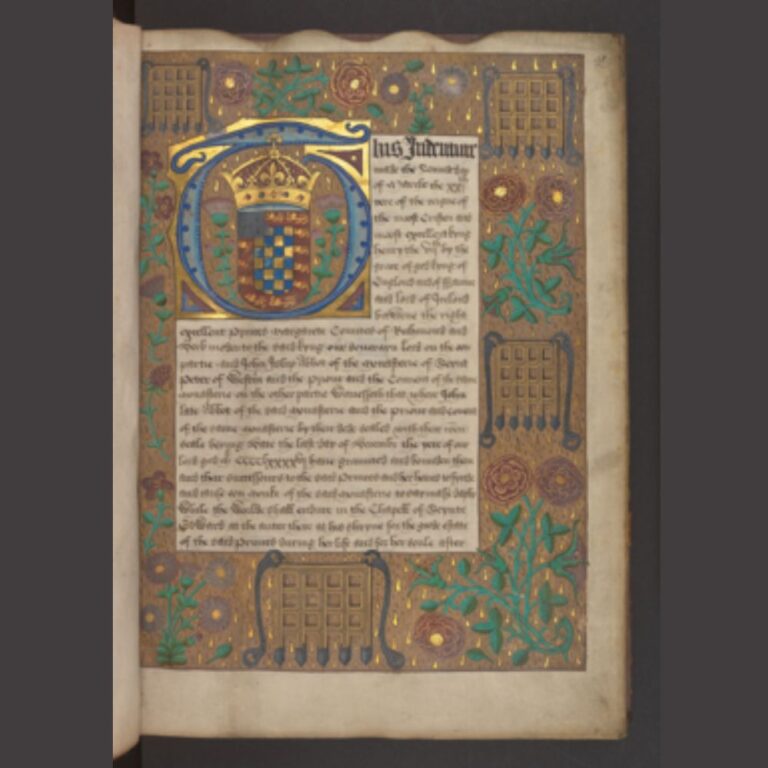 This Indenture
made the Seconde day
of Marche the XXI
yere of the reigne of
the moost Cristen and
moost excellent kyng
henry the vijth by the
grace of god kyng of
England and of Fraunce
and lord of Irelond
betwene the right
excellent Princes Margarete Countes of Richmond and
Derby moder to the said kyng our soverayn lord on the oon
partie and John Islip Abbot of the monasterie of Seynt
Peter of Westm and the Priour and the Convent of the same
monasterie on the other partie Witnesseth that where John
late Abbot of the said monasterie and the priour and convent
of the same monasterie by their dede sealed with their comen
seale beryng date the last day of the yere of our
lord god have graunted and bounden them
and their successours to the said Princes and her heires to fynde
and monks of the said monasterie to say masse dayly
While the Worlde shall endure in the Chapell of Seynt
Edward at the auter there at his shryne for the gode estate
of the said Princes during her life and for her soule after